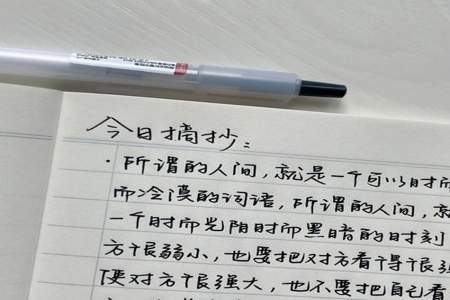 今日摘抄：
·所谓的人间，就是一个可以时而
而冷漠的词语，所谓的人间，就
一个时而光阴时而黑暗的时刻
方很弱小，也要把对方看得很强
使对方很强大，也不要把自己看